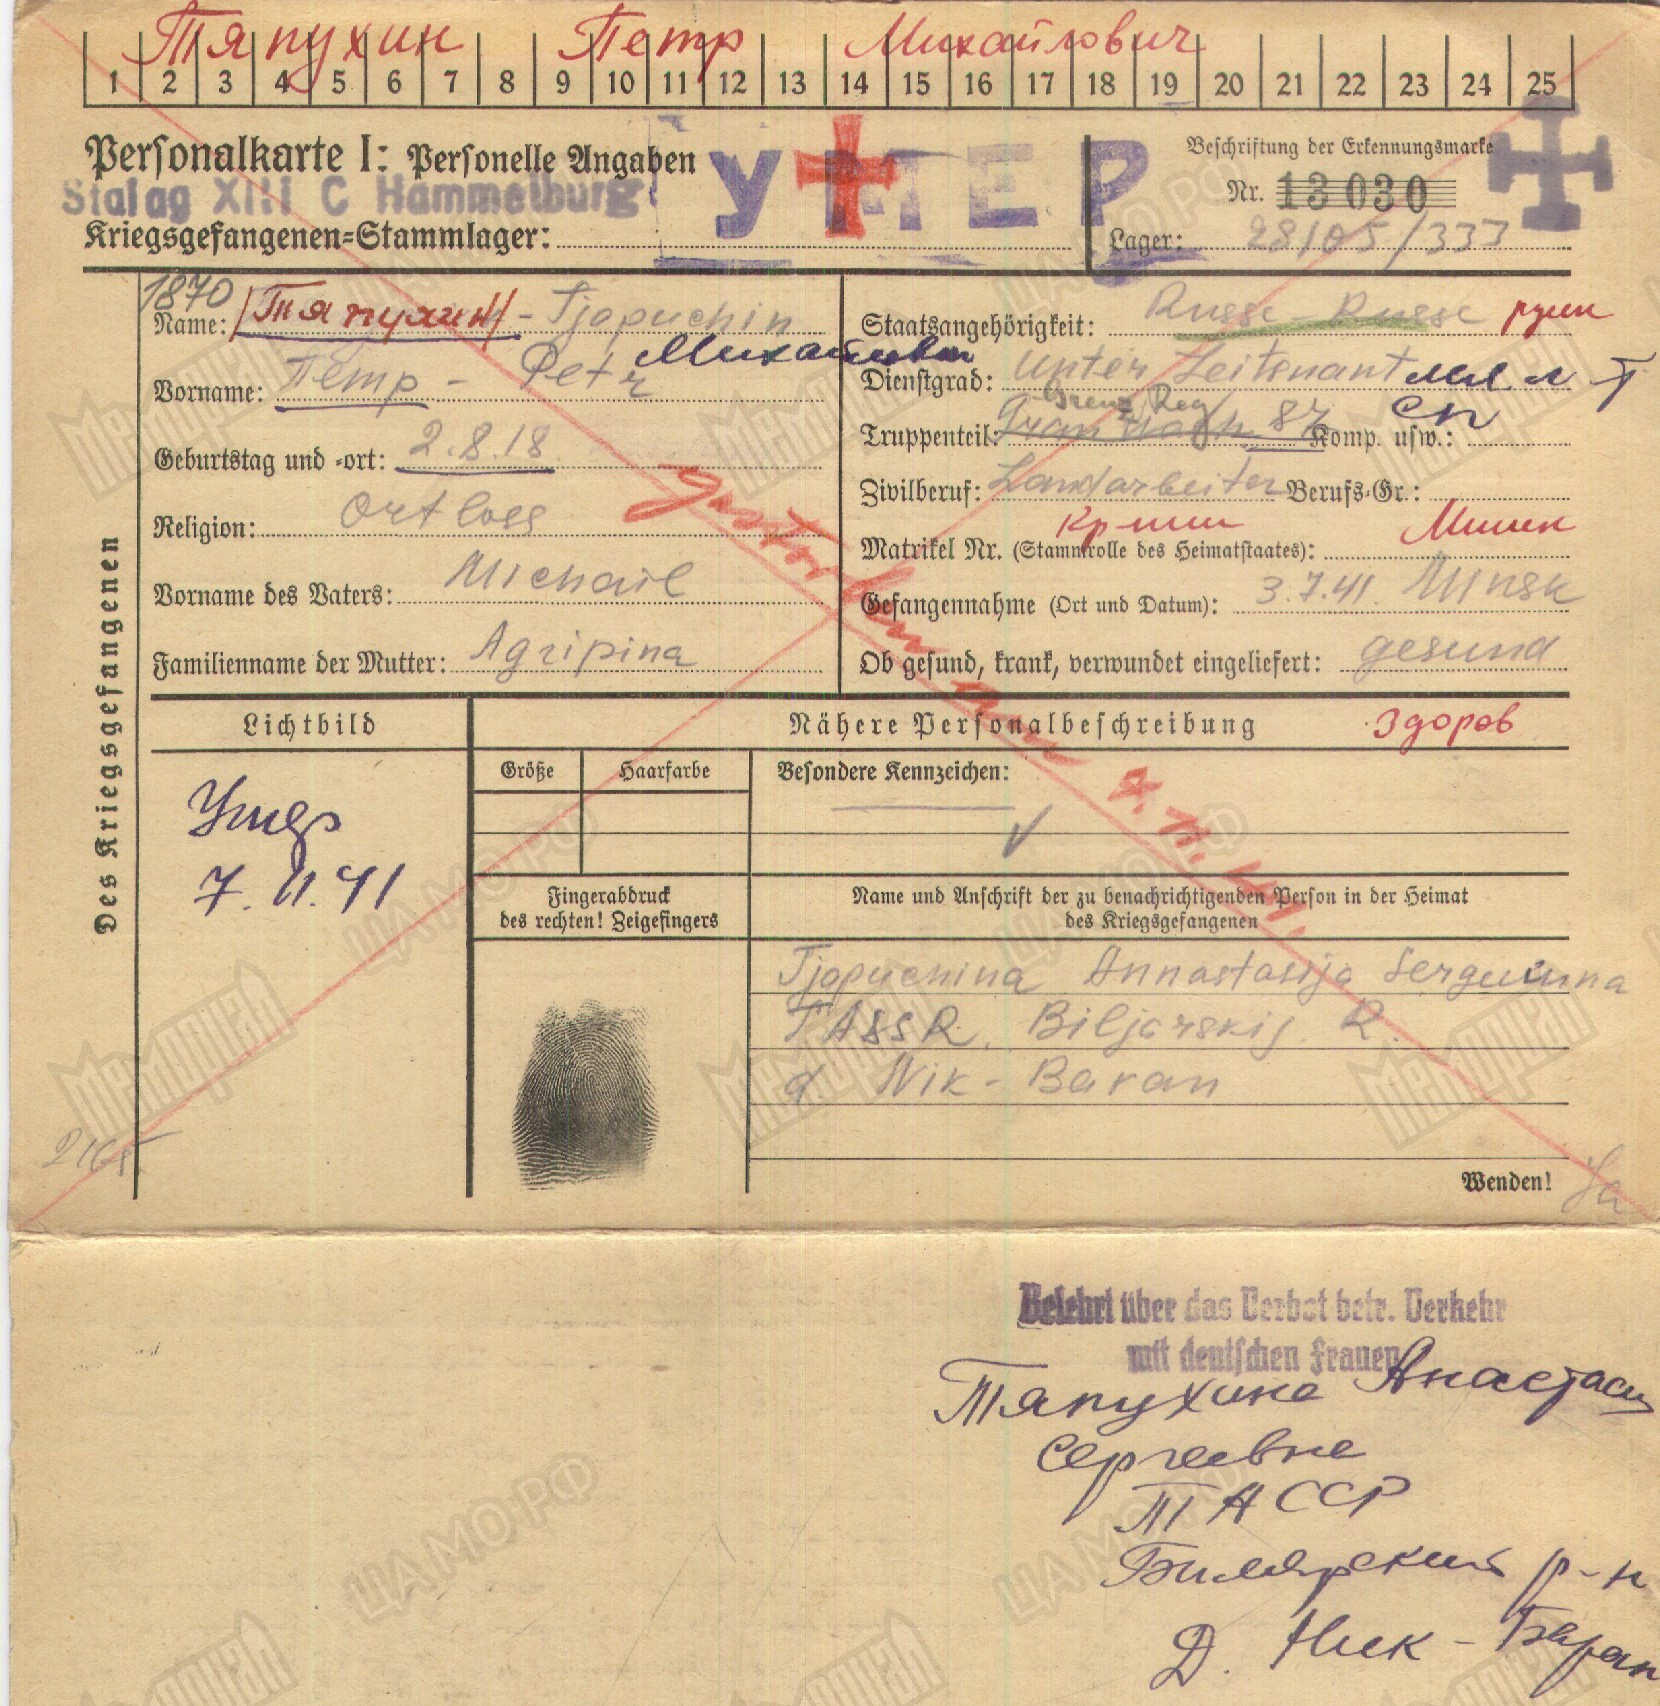 Тяпухин Петр Михайлович
1 2 3 4 5 6 7 8 9 10 11 12 13 14 15 16 17 18 19 20 21 22 23 24 25
Personalkarte I: Personelle Angaben
УМЕР
Beschriftung der Erkennungsmarke
Stalag XIII C Hammelburg
Nr. 13030
Kriegsgefangenen=Stammlager:
Lager: 28/05/333
Des Kriegsgefangenen
1870
Name: Тяпухин - Tjapuchin
Михайлович
Vorname: Петр - Petr
Geburtstag und =ort: 2.8.18
Religion: Ortloss
Vorname des Vaters: Michail
Familienname der Mutter: Agripina
Staatsangehörigkeit: Russe - Russe русск
Dienstgrad: Unter Leitenant мл. л-т
Grenz Reg
Truppenteil: 87 сп Komp. usw.:
Zivilberuf: Landarbeiter Berufs=Gr.:
кр-нин Минск
Matrikel Nr. (Stammrolle des Heimatstaates):
Gefangennahme (Ort und Datum): 3.7.41. Minsk
Ob gesund, krank, verwundet eingeliefert: gesund
gestorben am 7.11.41.
Lichtbild
Nähere Personalbeschreibung здоров
Größe Haarfarbe Besondere Kennzeichen:
Умер
7.11.41
Fingerabdruck
des rechten! Zeigefingers
Name und Anschrift der zu benachrichtigenden Person in der Heimat
des Kriegsgefangenen
Tjapuchina Annastasija Serguewna
TASSR. Biljarskij R.
d Nik - Baran
Wenden!
Belehrt über das Verbot betr. Verkehr
mit deutschen Frauen
Тяпухина Анастаси
Сергеевна
ТАССР
Билярский р-н
Д. Ник - Баран
ЦАМО РФ
Мемориал